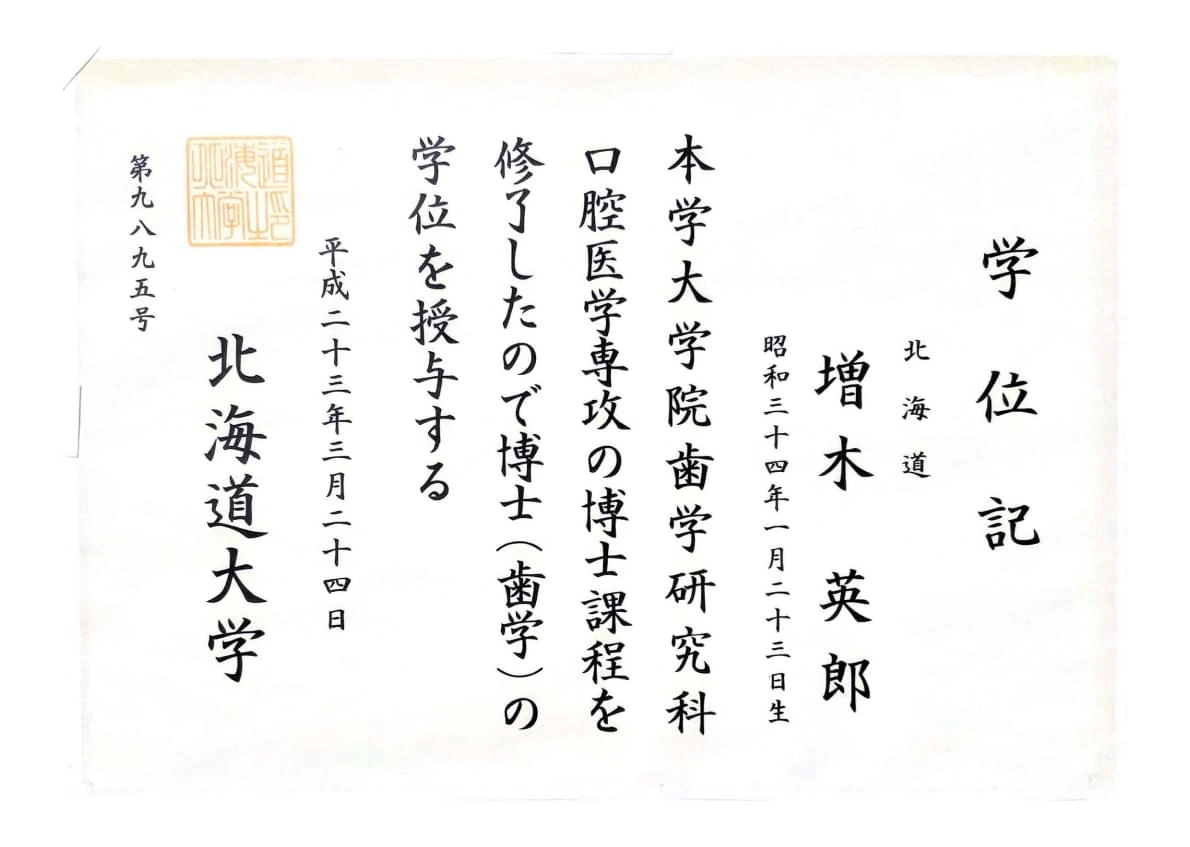 学位記
北海道
増木 英郎
昭和三十四年一月二十三日生
本学大学院歯学研究科
口腔医学専攻の博士課程を
修了したので博士（歯学）の
学位を授与する
平成二十三年三月二十四日
北海道大学
第九八九五号